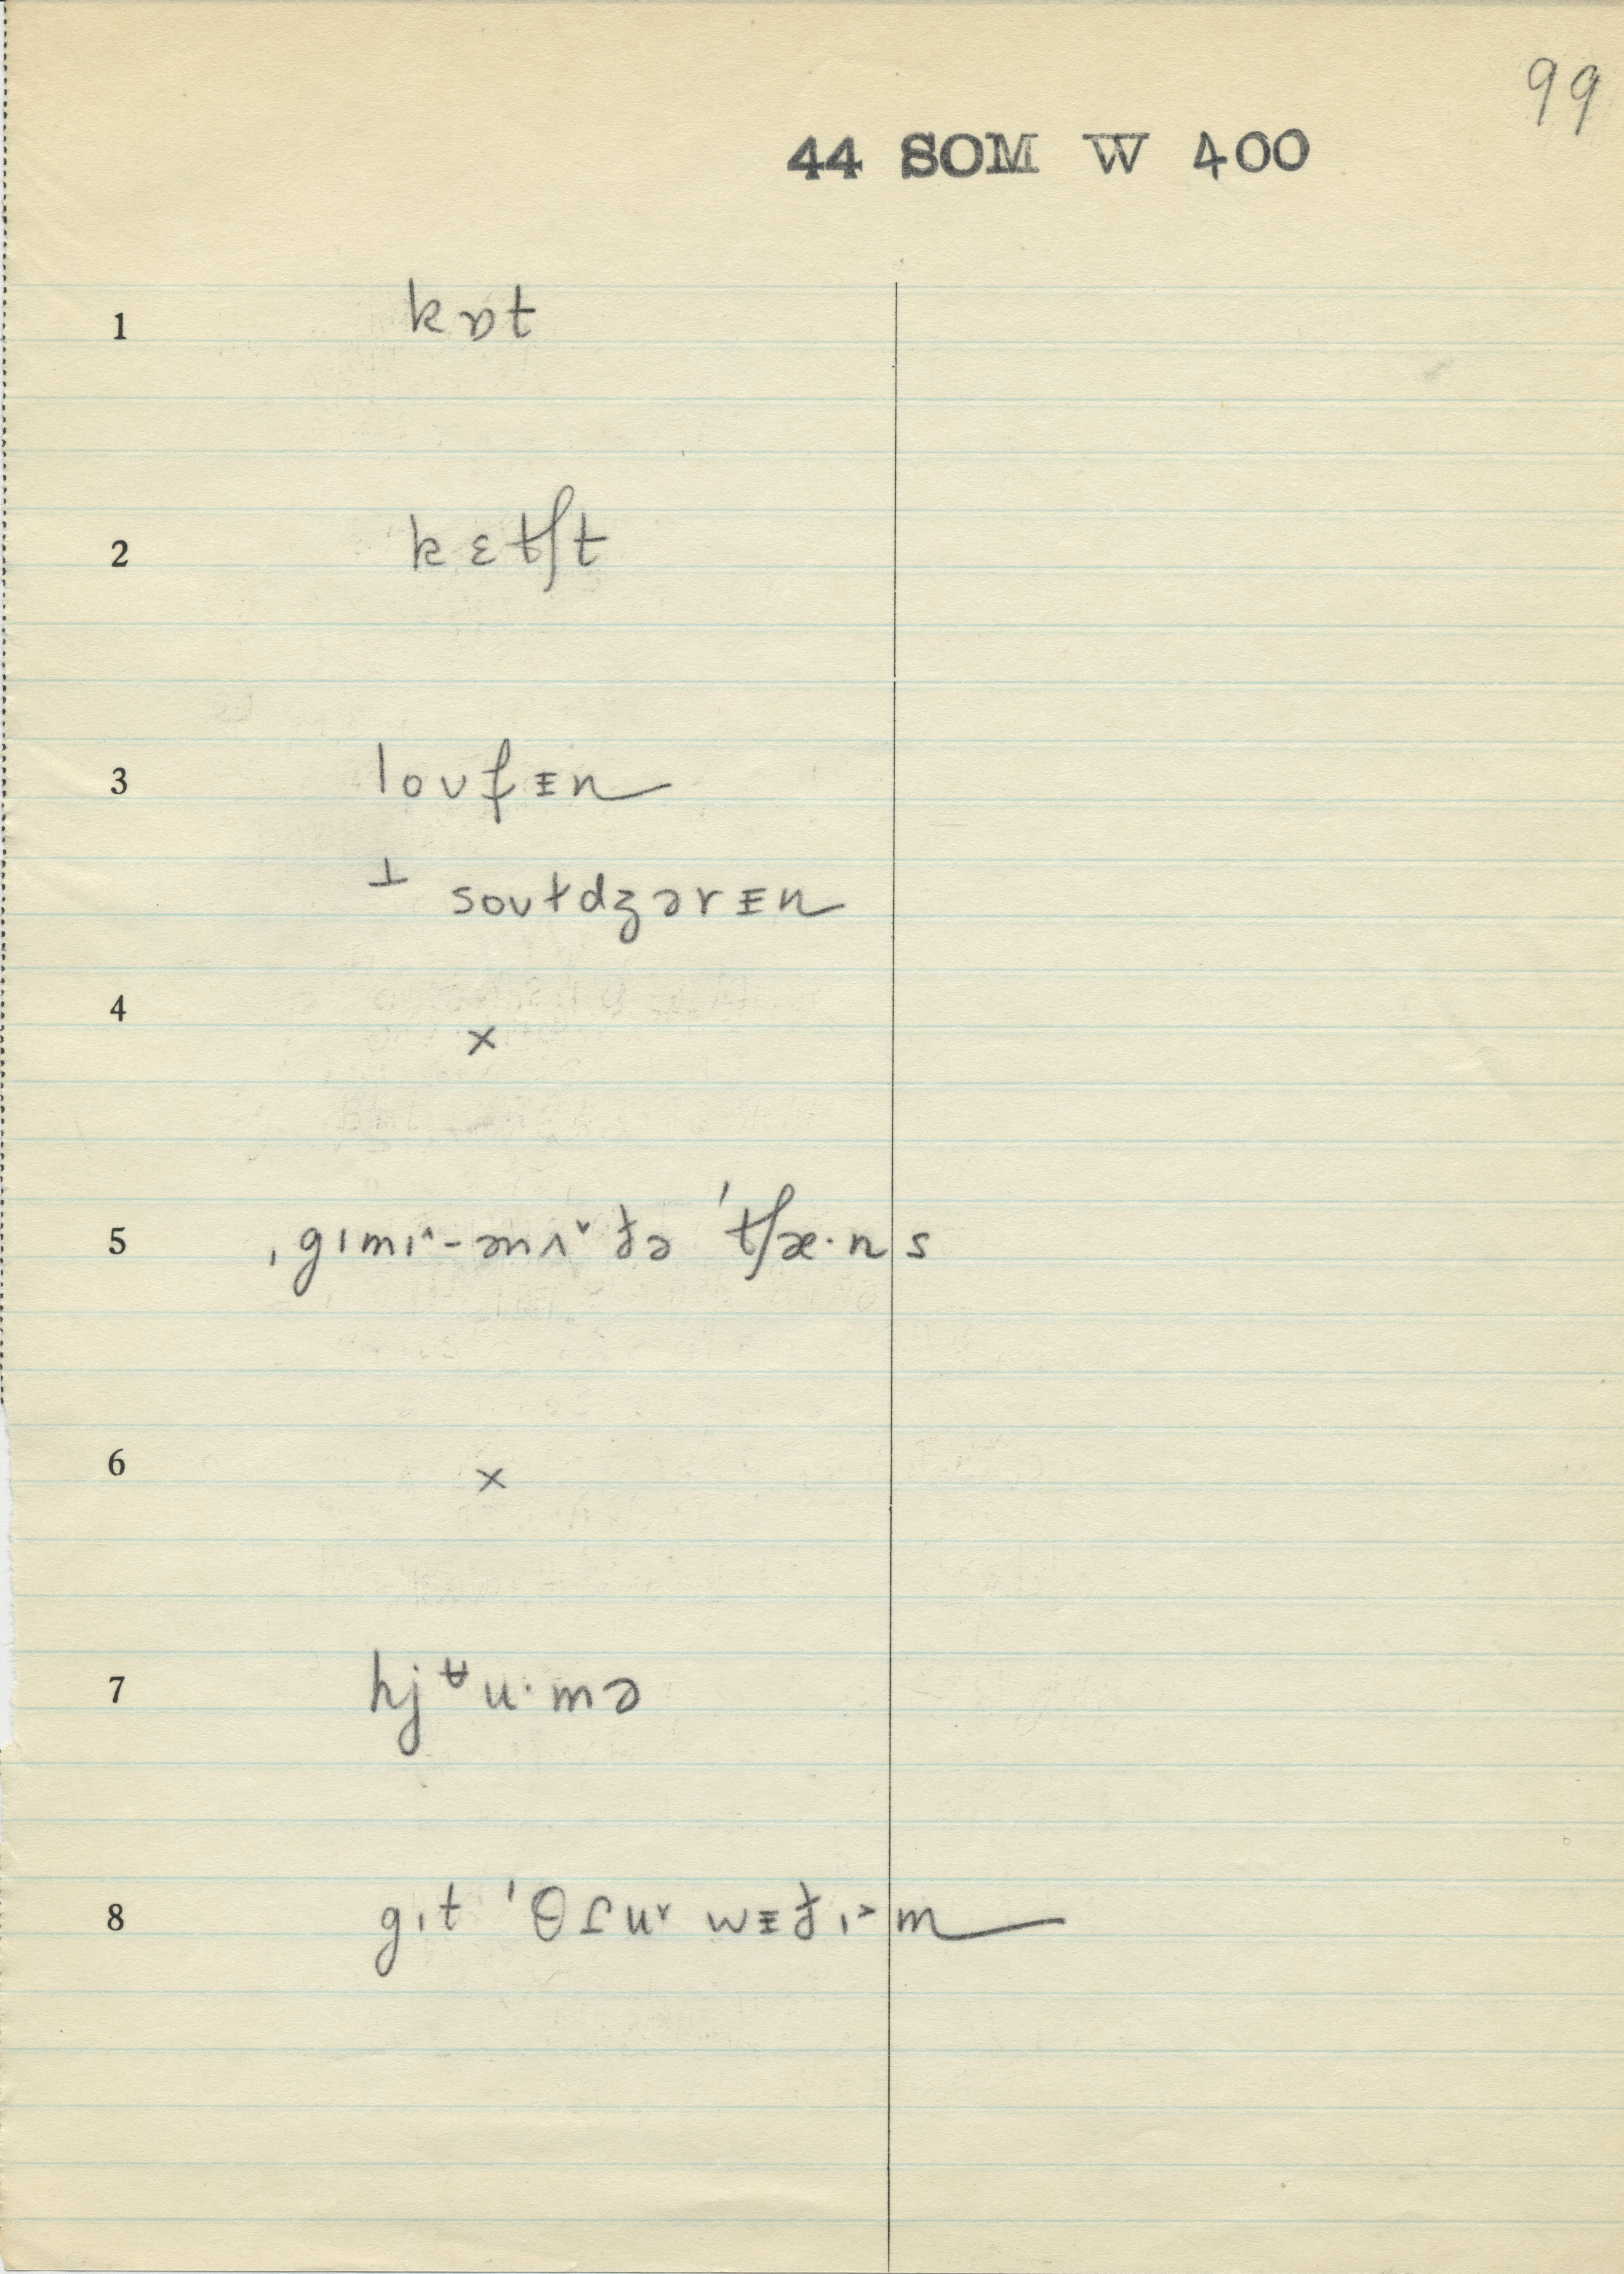 99
44 SOM W 400
1 kɒt
2 kɛtʃt
3 loʊfᵻn
⊥ soʊɫdʒərᵻn
4 ×
5 ˌgɪmɪ^-ənʌˇ ðə ˈtʃæ·ns
6 ×
7 hjᵾu·mə
8 gɪt ˈθɾuˇ wᵻðɪ˃m